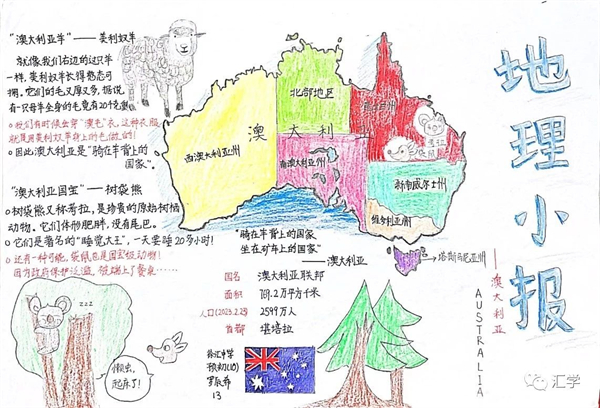 "澳大利亚羊"——美利奴羊
就像我们右边的这只羊
一样，美利奴羊长得憨态可
掬，它们的毛又厚又多，据说
有一只母羊全身的毛竟有20寸宽！
我们有时候会穿"澳毛"衣，这种衣服
就是用美利奴羊身上的毛做的！
因此澳大利亚是"骑在羊背上的
国家"。
"澳大利亚国宝"——树袋熊
树袋熊又称考拉，是珍贵的原始树栖
动物。它们体形肥胖，没有尾巴。
它们是著名的"睡觉大王"，一天要睡20多小时！
还有一种可能，袋鼠也是国宝级动物！
因为政府保护泛滥，被端上了餐桌……
zzz
懒虫，
起床了！
北部地区
昆士兰州
澳大利亚
西澳大利亚州
南澳大利亚州
考拉
袋鼠
新南威尔士州
维多利亚州
塔斯马尼亚州
"骑在羊背上的国家
坐在矿车上的国家"
——澳大利亚
国名 澳大利亚联邦
面积 769.2万平方千米
人口(2023.2.23) 2599万人
首都 堪培拉
徐汇中学
预初(10)
13
地理小报
——澳大利亚
AUSTRALIA
汇学